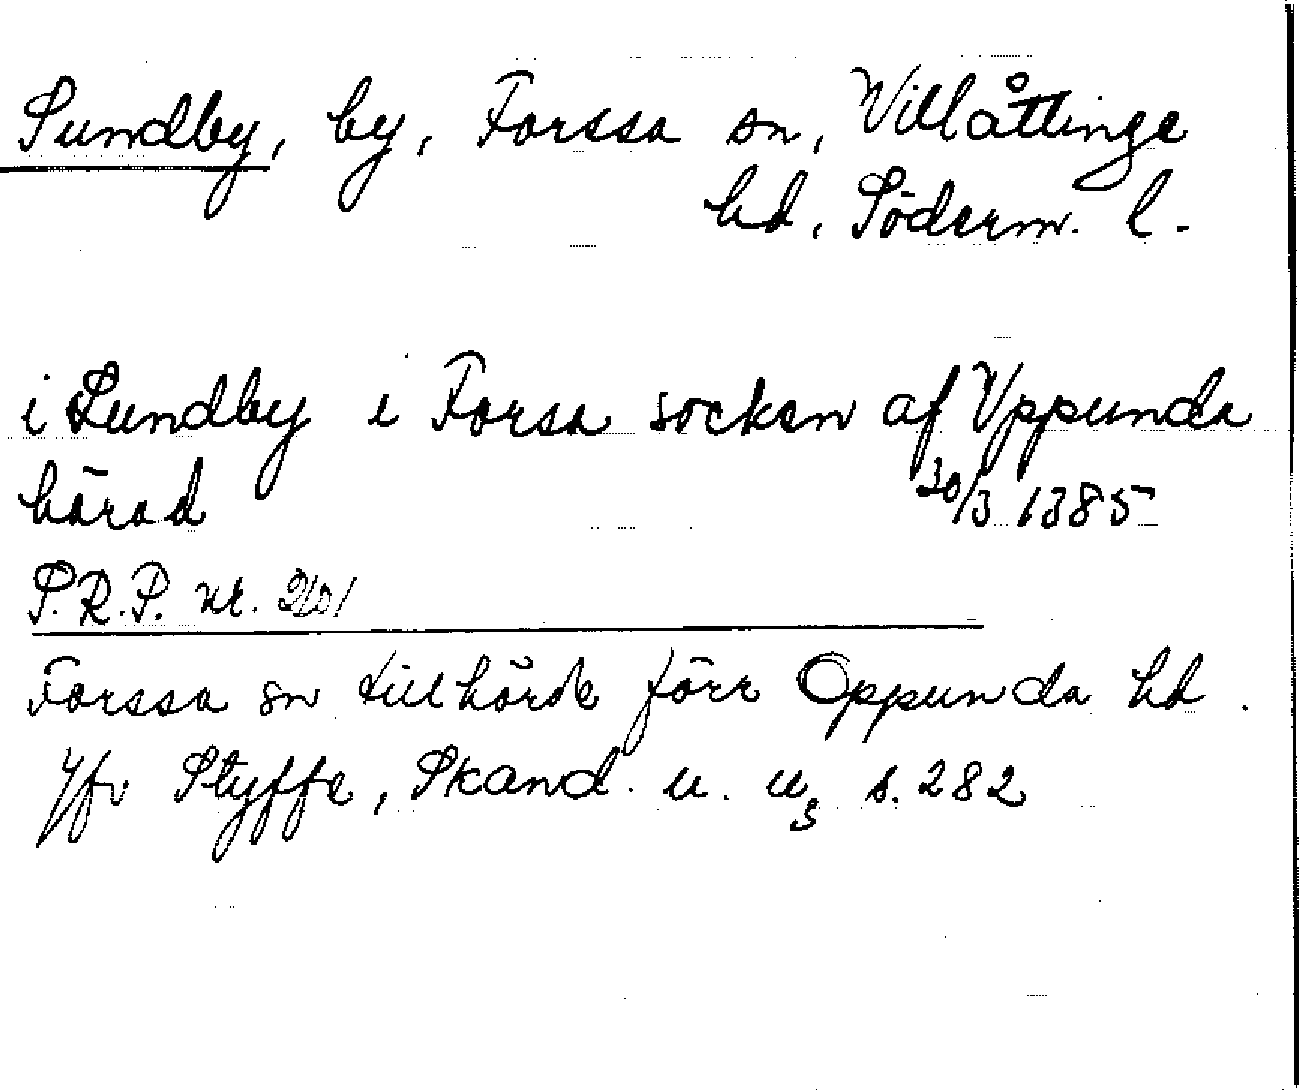 Sundby, by, Forssa sn, Villåttinge
hd, Söderm. l.
i Sundby i Forsa socken af Uppunda
härad 30/3 1385
S.R.P. nr.
Forssa sn tillhörde förr Oppunda hd.
Jfr Styffe, Skand. u. u, s. 282